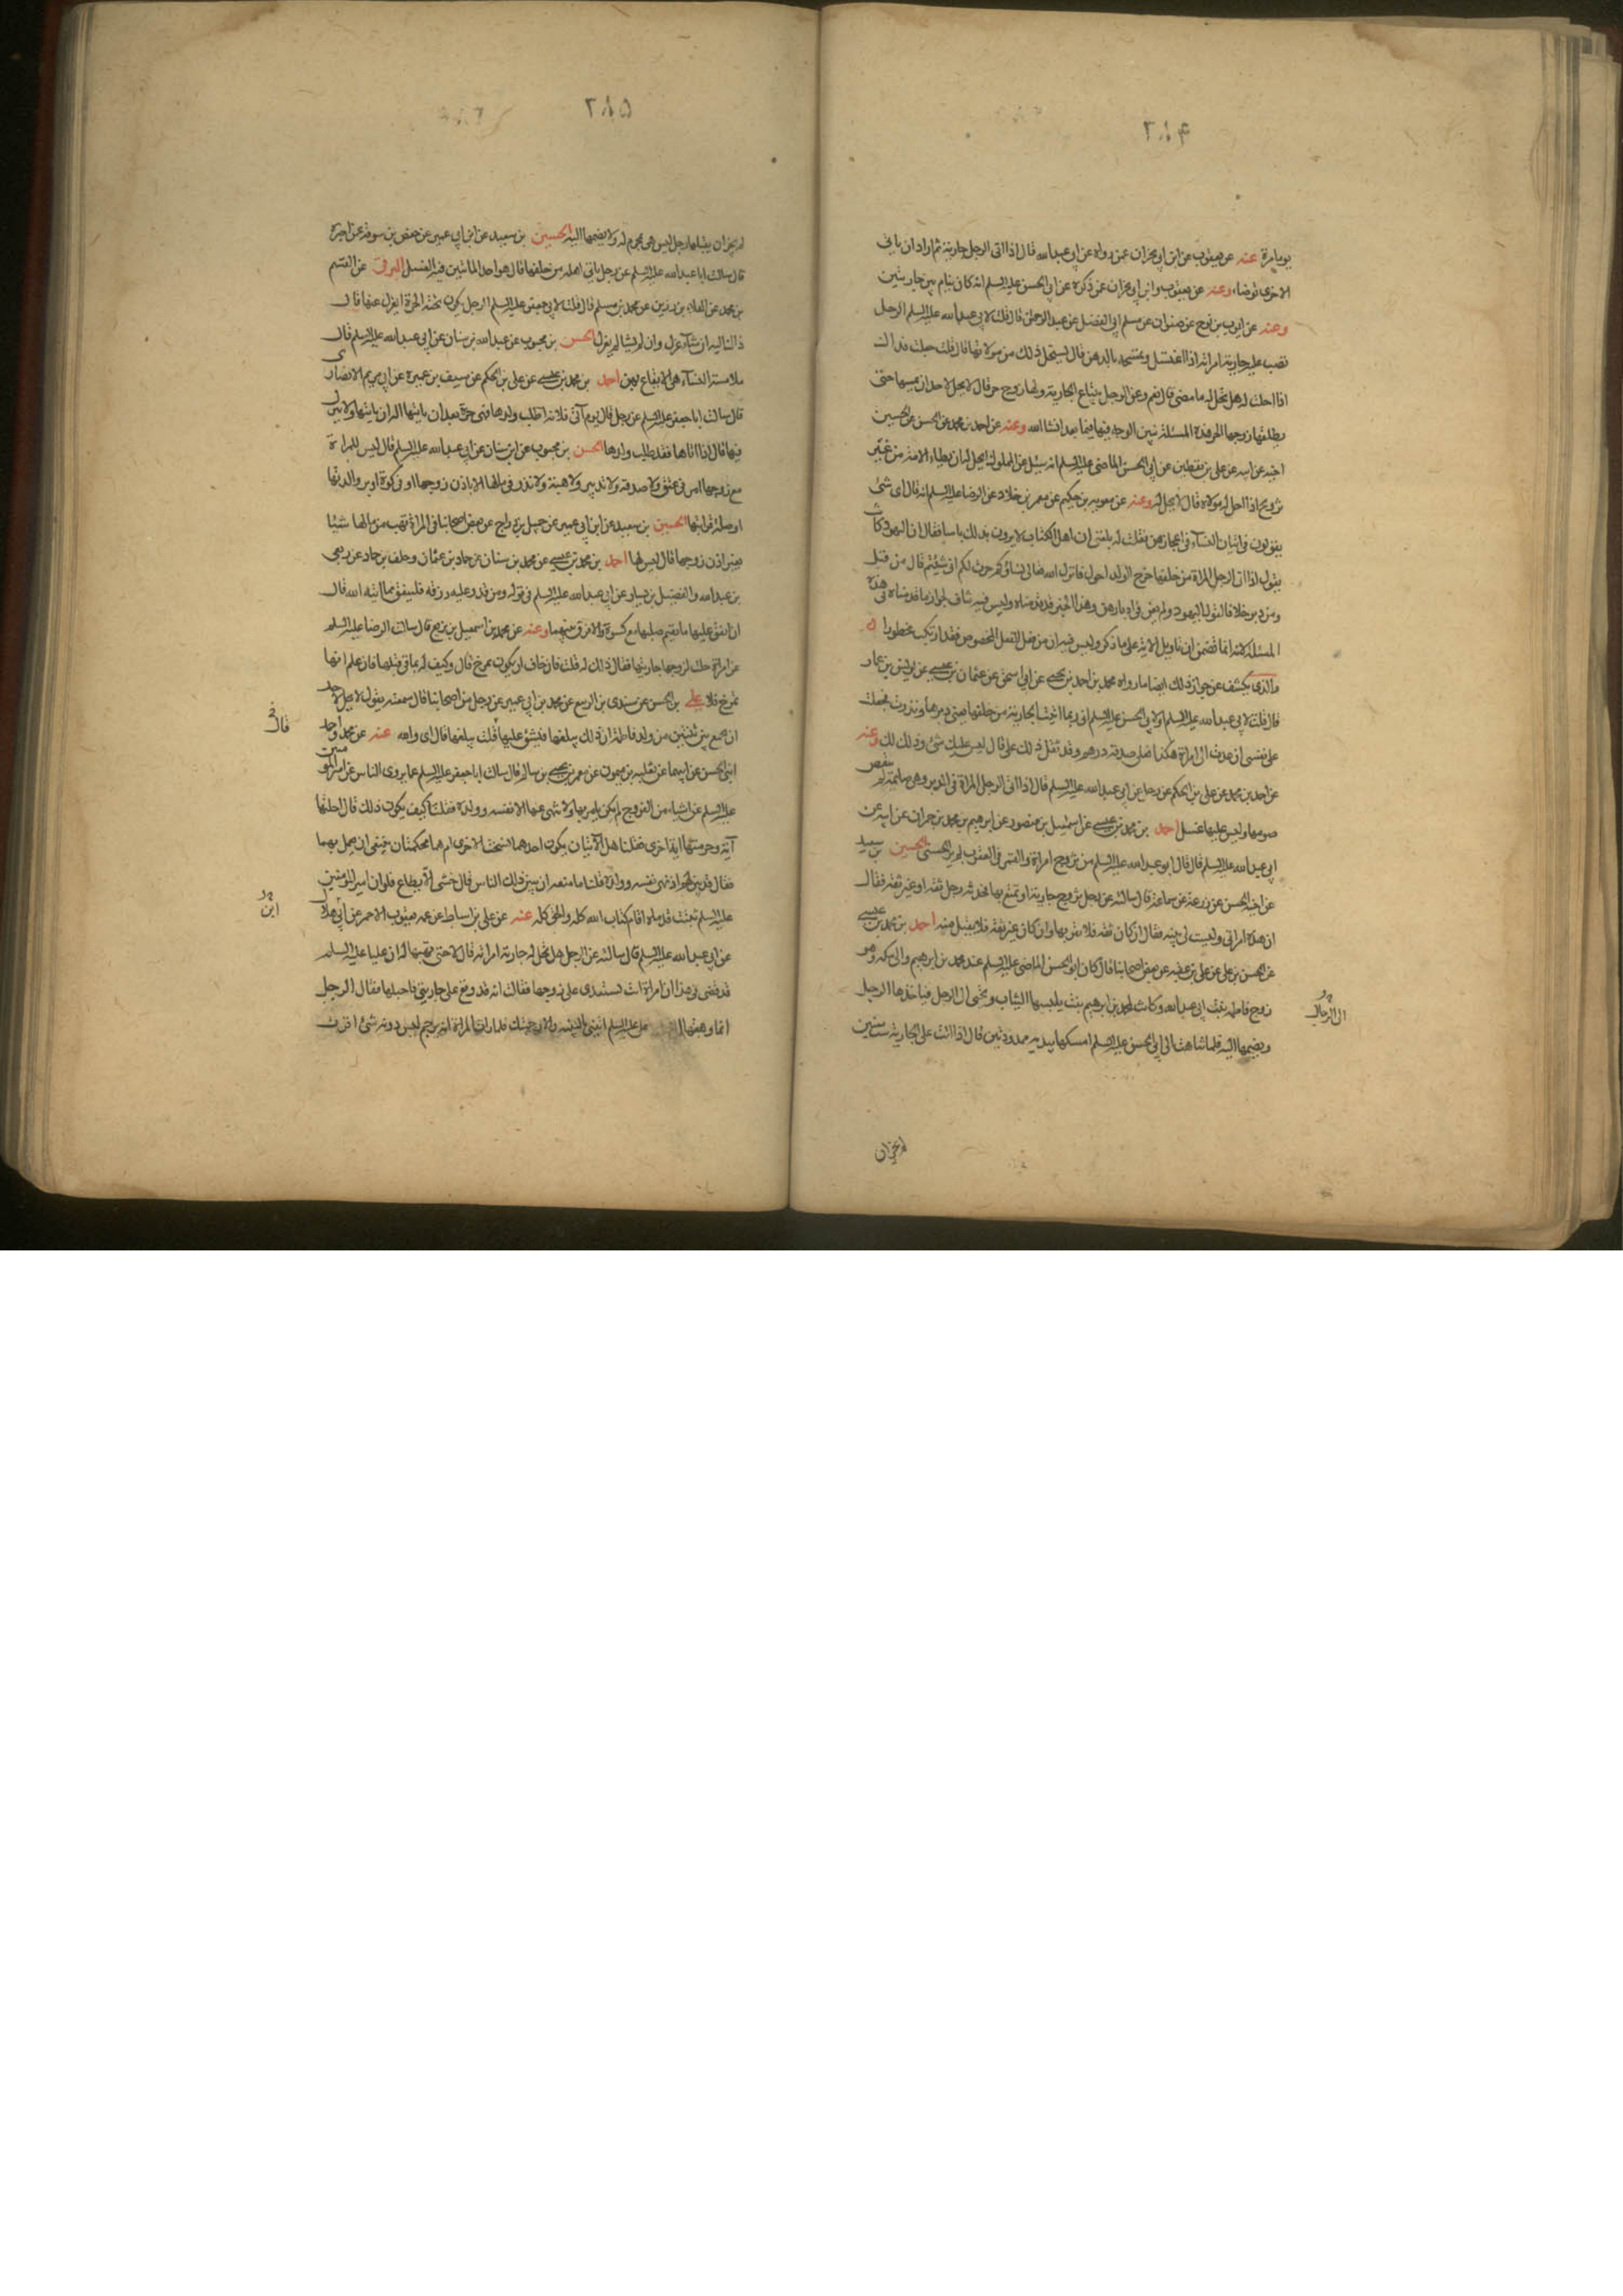 بويامرة عنه عن يعقوب عن ابن ابي نجران عمن رواه عن ابي عبد الله قال اذا اتى الرجل جاريته ثم اراد ان ياتي
الاخرى توضاء وعنه عن يعقوب وابن ابي نجران عمن ذكره عن ابي الحسن عليه السلم انه كان ينام بين جاريتين
وعنه عن ايوب بن نوح عن صفوان عن مسلم ابي الفضل عن عبد الرحمن قال قلت لابي عبد الله عليه السلم الرجل
تصب عليه جارية امراته اذا اغتسل وتمسحه بالدهن قال يستحل ذلك من مولاتها قال قلت جعلت فداك
اذا احلت له هل يحل له ما مضى قال نعم وعن الرجل يبتاع الجارية ولها زوج حر قال لا يحل لاحد ان يمسها حتى
يطلقها زوجها الحر فهذه المسئلة نبين الوجه فيها فيما بعد انشا الله وعنه عن احمد بن محمد عن الحسن عن الحسين
اخيه عن ابيه عن علي بن يقطين عن ابي الحسن الماضي عليه السلم انه سئل عن المملوك ايحل له ان يطاء الامة من غير
تزويج اذا احل له مولاه قال لا يحل له وعنه عن معوية بن حكيم عن معمر بن خلاد عن الرضا عليه السلم انه قال اي شئ
يقولون في اتيان النساء في اعجازهن فقلت له بلغني ان اهل الكتاب لا يرون بذلك باسا فقال ان اليهود كانت
يقول اذا اتى الرجل المراة من خلفها خرج الولد احول فانزل الله تعالى نساؤكم حرث لكم انى شئتم قال من قبل
ومن دبر خلافا لقول اليهود ولم يعن في ادبارهن وهذا الخبر قد قدمناه وليس فيه تناف لجواز ما قدمناه في هذه
المسئلة لانه انما تضمن ان تاويل الاية على ما ذكر وليس فيه ان من فعل الفعل المخصوص فقد ارتكب محظورا
والذي يكشف عن جواز ذلك ايضا ما رواه محمد بن احمد بن يحيى عن ابي اسحق عن عثمان بن عيسى عن يونس بن عمار
قال قلت لابي عبد الله عليه السلم او لابي الحسن عليه السلم اني ربما اتيت الجارية من خلفها يعني دبرها ونذرت فجعلت
على نفسي ان عدت الى امراة هكذا فعلي صدقة درهم وقد ثقل ذلك علي قال ليس عليك شئ وذلك لك وعنه
عن احمد بن محمد عن علي بن الحكم عن رجل عن ابي عبد الله عليه السلم قال اذا اتى الرجل المراة في الدبر وهي صايمة لم ينقض
صومها وليس عليها غسل احمد بن محمد بن عيسى عن اسمعيل بن منصور عن ابرهيم بن محمد بن حمران عن ابيه عن
ابي عبد الله عليه السلم قال قال ابو عبد الله عليه السلم من تزوج امراة والقمر في العقرب لم ير الحسنى الحسين بن سعيد
عن اخيه الحسن عن زرعة عن سماعة قال سالته عن رجل تزوج جارية او تمتع بها فحدثه رجل ثقة او غير ثقة فقال
ان هذه امراتي وليست لي بينة فقال ان كان ثقة فلا يقربها وان كان غير ثقة فلا يقبل منه احمد بن محمد بن عيسى
عن الحسن بن علي عن علي بن عقبة عن بعض اصحابنا قال كان ابو الحسن الماضي عليه السلم عند محمد بن ابرهيم والي مكة وهو
زوج فاطمة بنت ابي عبد الله وكانت لمحمد بن ابرهيم بنت يلبسها الثياب وتجئ الى الرجل فياخذها الرجل
ويضمها اليه فلما تناهت الى ابي الحسن عليه السلم امسكها بيديه ممدودتين قال اذا اتت على الجارية ست سنين
الى الرجال
لم يجز ان
لم يجز ان يقبلها رجل ليس هي بمحرم له ولا يضمها اليه الحسين بن سعيد عن ابن ابي عمير عن حفص بن سوقة عمن اخبره
قال سالت ابا عبد الله عليه السلم عن رجل ياتي اهله من خلفها قال هو احد الماتيين فيه الغسل البرقي عن القسم
بن محمد عن العلاء بن رزين عن محمد بن مسلم قال قلت لابي جعفر عليه السلم الرجل يكون تحته الحرة ايعزل عنها قال
ذاك اليه ان شاء عزل وان لم يشا لم يعزل الحسن بن محبوب عن عبد الله بن سنان عن ابي عبد الله عليه السلم قال
ملامسة النساء هي الايقاع بهن احمد بن محمد بن عيسى عن علي بن الحكم عن سيف بن عميرة عن ابي مريم الانصاري
قال سالت ابا جعفر عليه السلم عن رجل قال يوم آتي فلانة اطلب ولدها فهي حرة بعد ان ياتيها اله ان ياتيها ولا ينزل
فيها قال اذا اتاها فقد طلب ولدها الحسن بن محبوب عن ابن سنان عن ابي عبد الله عليه السلم قال ليس للمراة
مع زوجها امر في عتق ولا صدقة ولا تدبير ولا هبة ولا نذر في مالها الا باذن زوجها او زكوة او بر والديها
او صلة قرابتها الحسين بن سعيد عن ابن ابي عمير عن جميل بن دراج عن بعض اصحابنا في المراة تهب من مالها شيئا
بغير اذن زوجها قال ليس لها احمد بن محمد بن عيسى عن محمد بن سنان عن حماد بن عثمان وخلف بن حماد عن ربعي
بن عبد الله والفضيل بن يسار عن ابي عبد الله عليه السلم في قوله ومن قدر عليه رزقه فلينفق مما اتيه الله قال
ان انفق عليها ما يقيم صلبها مع كسوة والا فرق بينهما وعنه عن محمد بن اسمعيل بن بزيع قال سالت الرضا عليه السلم
عن امراة احلت لزوجها جاريتها فقال ذلك له قلت فان خاف ان يكون تمزح قال وكيف له بما في قلبها فان علم انها
تمزح فلا علي بن الحسن عن سندي بن الربيع عن محمد بن ابي عمير عن رجل من اصحابنا قال سمعته يقول لا يحل لاحد
ان يجمع بين ثنتين من ولد فاطمة ان ذلك يبلغها فيشق عليها قلت يبلغها قال اي والله عنه عن محمد واحمد
ابني الحسن عن ابيهما عن ثعلبة بن ميمون عن معمر بن يحيى بن سالم قال سالت ابا جعفر عليه السلم عما يروي الناس عن امير المومنين
عليه السلم عن اشياء من الفروج لم يكن يامر بها ولا ينهى عنها الا نفسه وولده فقلنا كيف يكون ذلك قال احلتها
آية وحرمتها اية اخرى فقلنا هل الآيتان يكون احدهما نسخت الاخرى ام هما محكمتان ينبغي ان يعمل بهما
فقال قد بين لهم اذ نهى نفسه وولده قلنا ما منعه ان يبين ذلك للناس قال خشى الا يطاع فلو ان امير المؤمنين
عليه السلم ثبتت قدماه اقام كتاب الله كله والحق كله عنه عن علي بن اسباط عن عمه يعقوب الاحمر عن ابي هلال
عن ابي عبد الله عليه السلم قال سالته عن الرجل هل تحل له جارية امراته قال لا حتى تهبها له ان عليا عليه السلم
قد قضى في هذا ان امراة اتت تستعدي على زوجها فقالت انه قد وقع على جاريتي فاحبلها فقال الرجل
انما وهبتها لي علي عليه السلم ائتني بالبينة والا رجمتك فلما رات المراة انه رجم ليس دونه شئ اقرت
قال
ابن